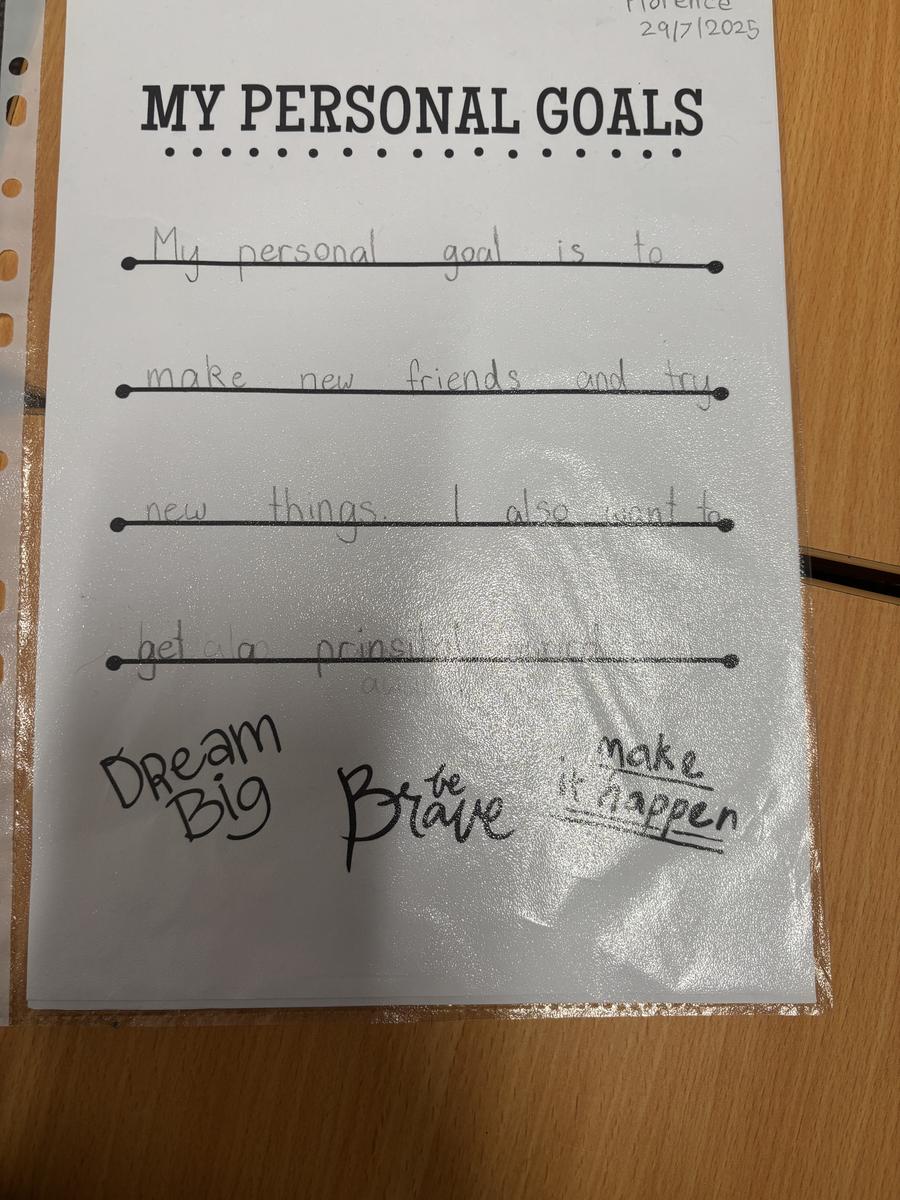 Florence
29/7/2025
MY PERSONAL GOALS
My personal goal is to
make new friends and try
new things. I also want to
get a
Dream
Big
be
Brave
make
it happen